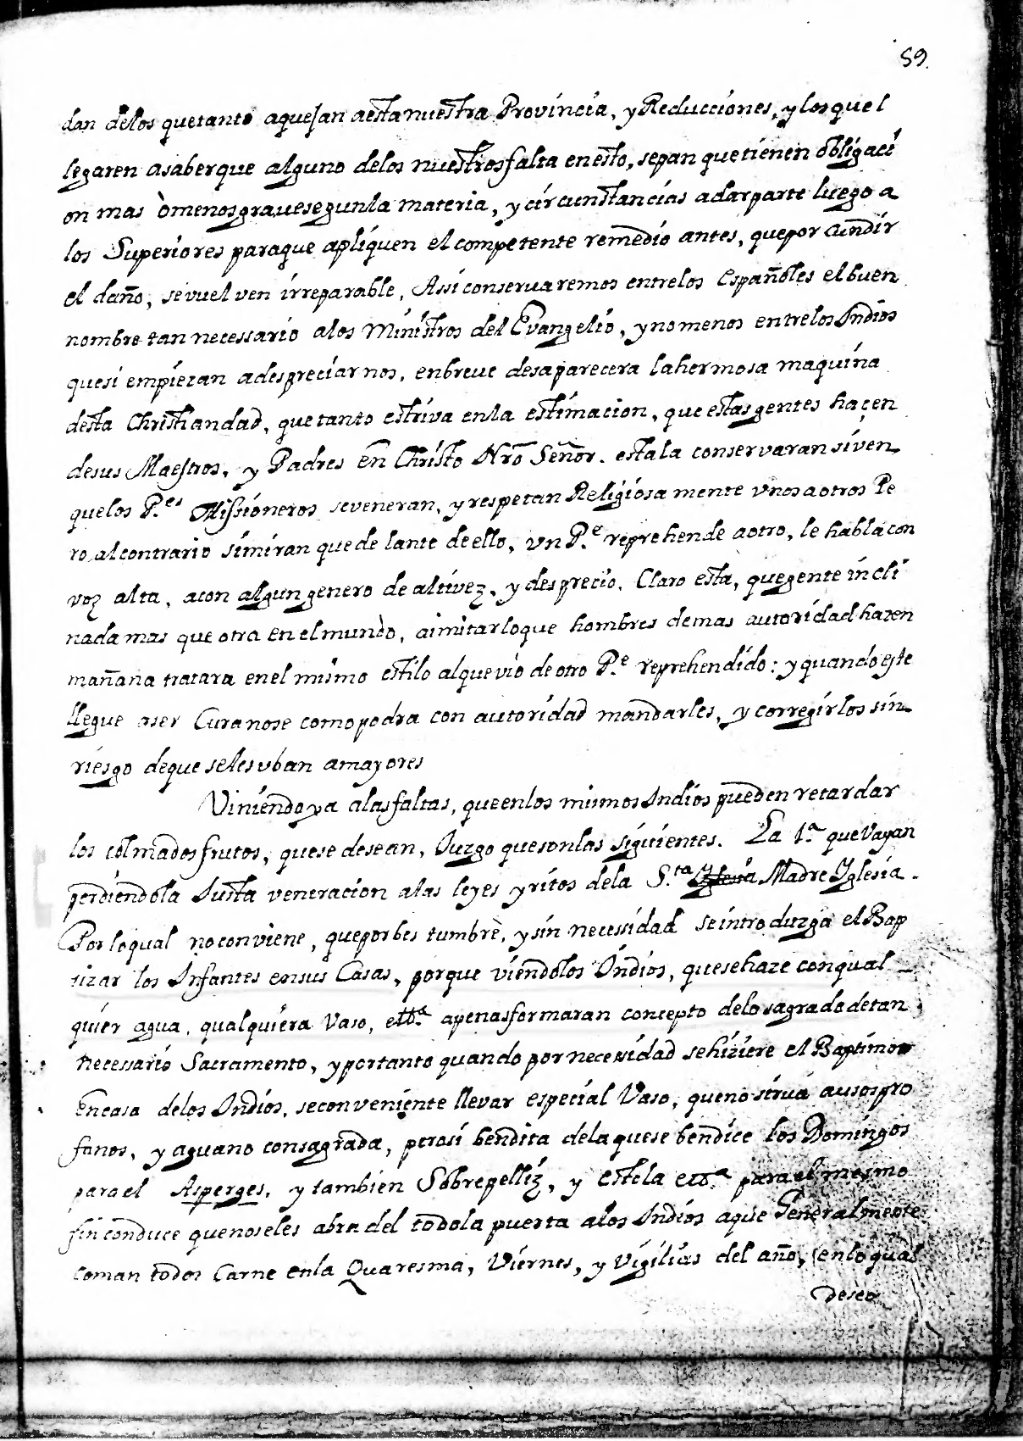 59.
dan delos quetanto aquejan aestanuestra Provincia, y Reducciones, y los que l
legaren asaberque alguno delos nuestros falta enesto, sepan quetienen obligaci
on mas ò menos grave segun la materia, y circunstancias adarparte luego a
los Superiores paraque apliquen el competente remedio antes, que por cundir
el daño, sevuelven irreparable, Assi conservaremos entrelos Españoles el buen
nombre tan necessario alos Ministros del Evangelio, y no menos entrelos Indios
quesi empiezan adespreciarnos, enbreve desaparecera lahermosa maquina
desta Christiandad, que tanto estriva enla estimacion, que estas gentes haçen
desus Maestros, y Padres en Christo Nrõ Señor. estala conservaran siven
quelos P.es Missioneros seveneran, y respetan Religiosa mente vnos aotros Pe
ro, alcontrario simiran que de lante de ello, vn P.e reprehende aotro, le habla con
voz alta, acon algun genero de altivez, y desprecio. Claro esta, quegente incli
nada mas que otra en el mundo, aimitar loque hombres demas autoridad hazen
mañana tratara en el mismo estilo alque vio de otro P.e reprehendido: y quando este
llegue aser Cura nose comopodra con autoridad mandarles, y corregirlos sin
riesgo deque selesuban amayores
Viniendo ya alasfaltas, queenlos mismos Indios pueden retardar
los colmados frutos, quese desean, Juzgo quesonlas siguientes. La 1.a que vayan
perdiendola Justa veneracion alas leyes y ritos dela S.ta Iglesia Madre Iglesia.
Por loqual no conviene, queporbes tumbre, y sin necessidad seintroduzga el Bap
tizar los Infantes ensus Casas, porque viendolos Indios, quesehaze conqual
quier agua, qualquiera Vaso, ett.a apenas formaran concepto delosagrado detan
necessario Sacramento, y portanto quando por necessidad sehiziere el Baptismo
encasa delos Indios, seconveniente llevar especial Vaso, queno sirva ausos pro
fanos, y aguano consagrada, perosi bendita dela quese bendice los Domingos
para el Asperges, y tambien Sobrepelliz, y estola ett.a para el mesmo
fin conduce quenoseles abra del todola puerta alos Indios aque Generalmente
coman todos Carne enla Quaresma, Viernes, y Vigilias del año, enlo qual
deseo